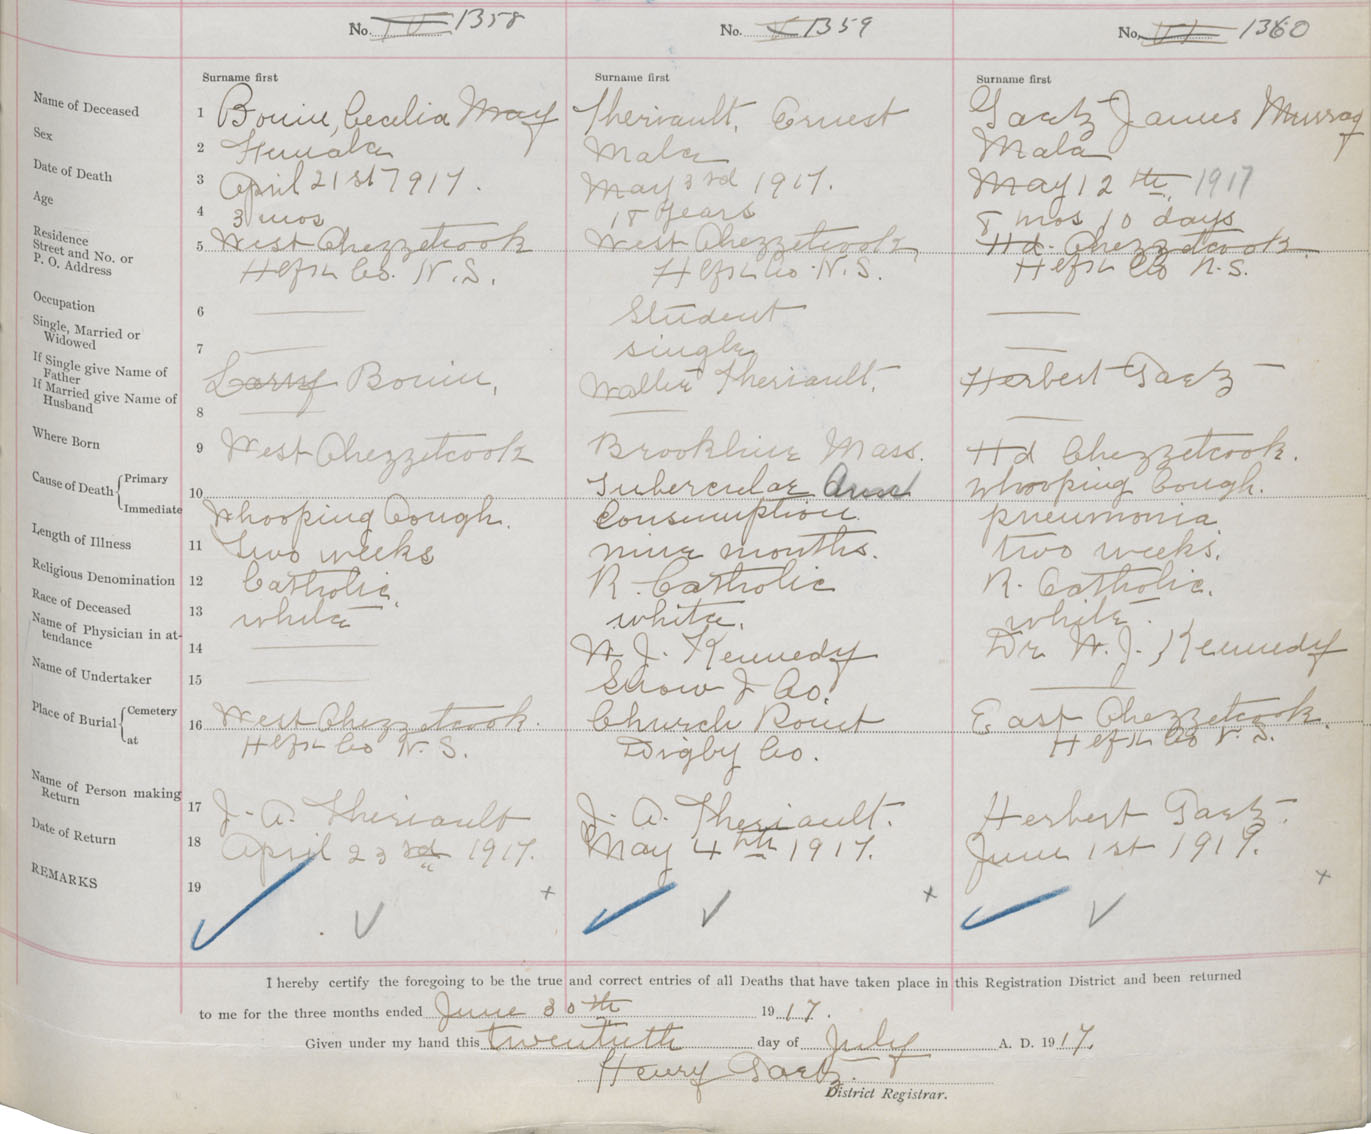 No. 1358
No. 1359
No. 1360
Surname first
Surname first
Surname first
Name of Deceased 1 Bouin, Cecelia May Theriault, Ernest Gaetz James Murray
Sex 2 Female Male Male
Date of Death 3 April 21st 1917. May 3rd 1917. May 12th 1917
Age 4 3 mos 18 years 8 mos 10 days
Residence
Street and No. or
P. O. Address
5 West Chezzetcook West Chezzetcook, Hd. Chezzetcook.
Hfx Co. N.S. Hfx Co. N.S. Hfx Co N.S.
Occupation 6 Student
Single, Married or
Widowed
7 single
If Single give Name of
Father
Larry Bouin, Theriault. Herbert Gaetz
If Married give Name of
Husband
8
Where Born 9 West Chezzetcook Brookline Mass. Hd Chezzetcook.
Cause of Death { Primary Tubercular whooping Cough.
10
Immediate Whooping Cough. Consumption. pneumonia
Length of Illness 11 Two weeks nine months. two weeks.
Religious Denomination 12 Catholic. R. Catholic R. Catholic.
Race of Deceased 13 white white. white.
Name of Physician in at-
tendance
14 W. J. Kennedy Dr W. J. Kennedy
Name of Undertaker 15 Snow & Co.
Place of Burial { Cemetery
at
16 West Chezzetcook. Church Point East Chezzetcook.
Hfx Co N.S. Digby Co. Hfx Co N.S.
Name of Person making
Return
17 J. A. Theriault J. A. Theriault. Herbert Gaetz.
Date of Return 18 April 23rd 1917. May 4th 1917. June 1st 1917.
REMARKS 19
I hereby certify the foregoing to be the true and correct entries of all Deaths that have taken place in this Registration District and been returned
to me for the three months ended June 30th 1917.
Given under my hand this twentieth day of July A. D. 1917.
Henry Gaetz.
District Registrar.